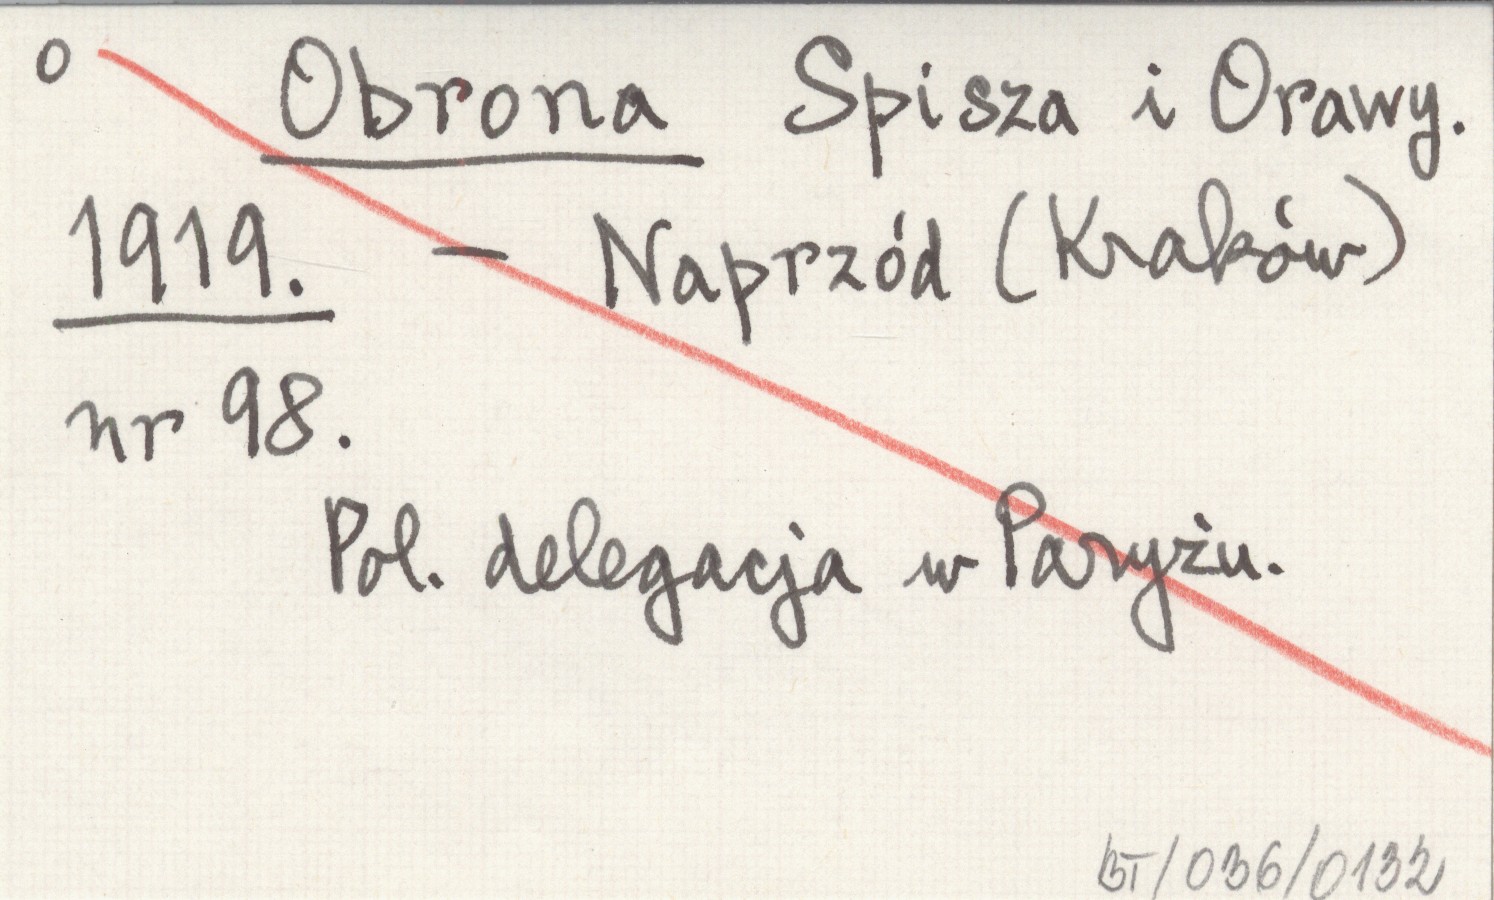 o Obrona Spisza i Orawy.
1919. – Naprzód (Kraków)
nr 98.
Pol. delegacja w Paryżu.
BT/036/0132